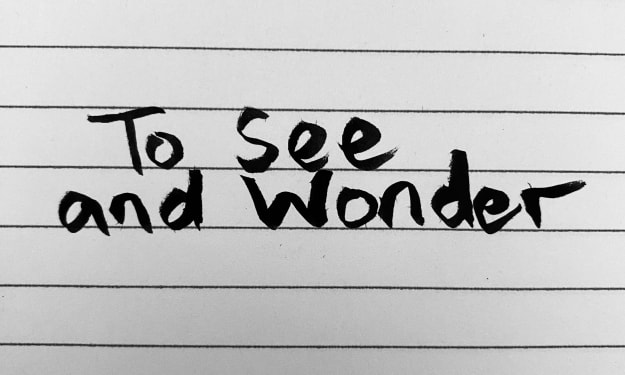 To See
and Wonder